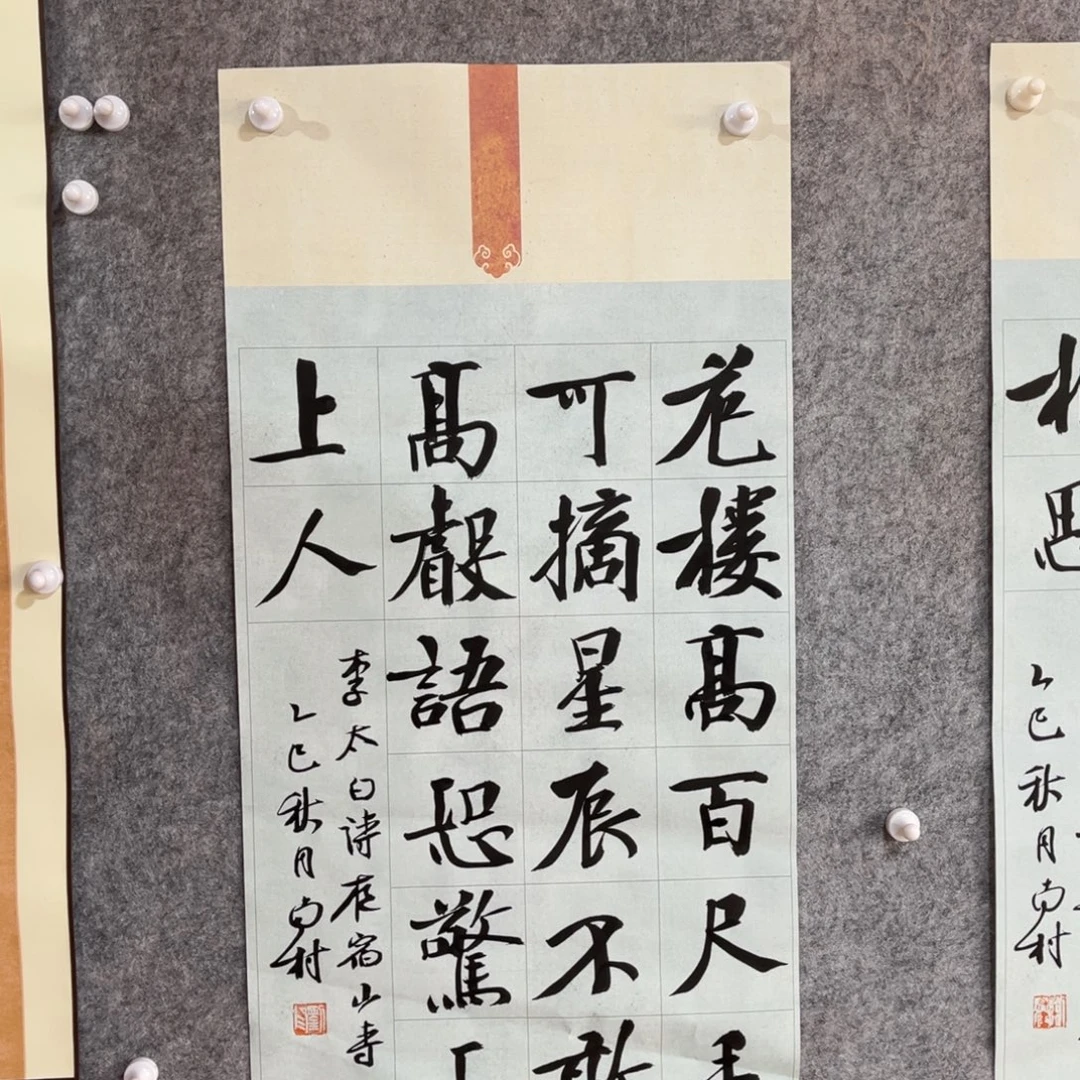 危樓高百尺手
可摘星辰不敢
高聲語恐驚
上人
李太白诗夜宿山寺
乙巳秋月南村
思
乙巳秋月南村